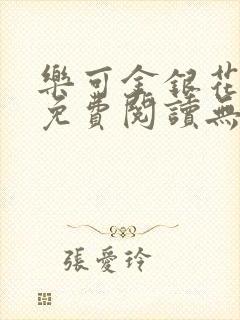 樂可金銀花
免費閱讀無
張愛玲